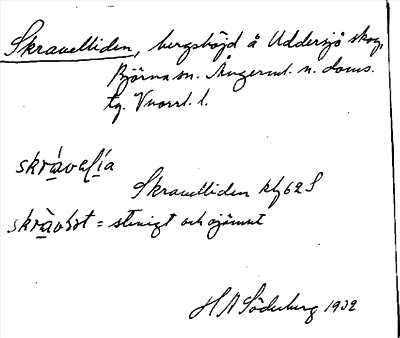 Skravelliden, bergshöjd å Uddersjö skog,
Björna sn. Ångerml. n. doms.
tg. Vnorrl. l.
skràvalía
Skravelliden kbl 62 S
skràvlot = stenigt och ojämnt
H A Söderberg 1932